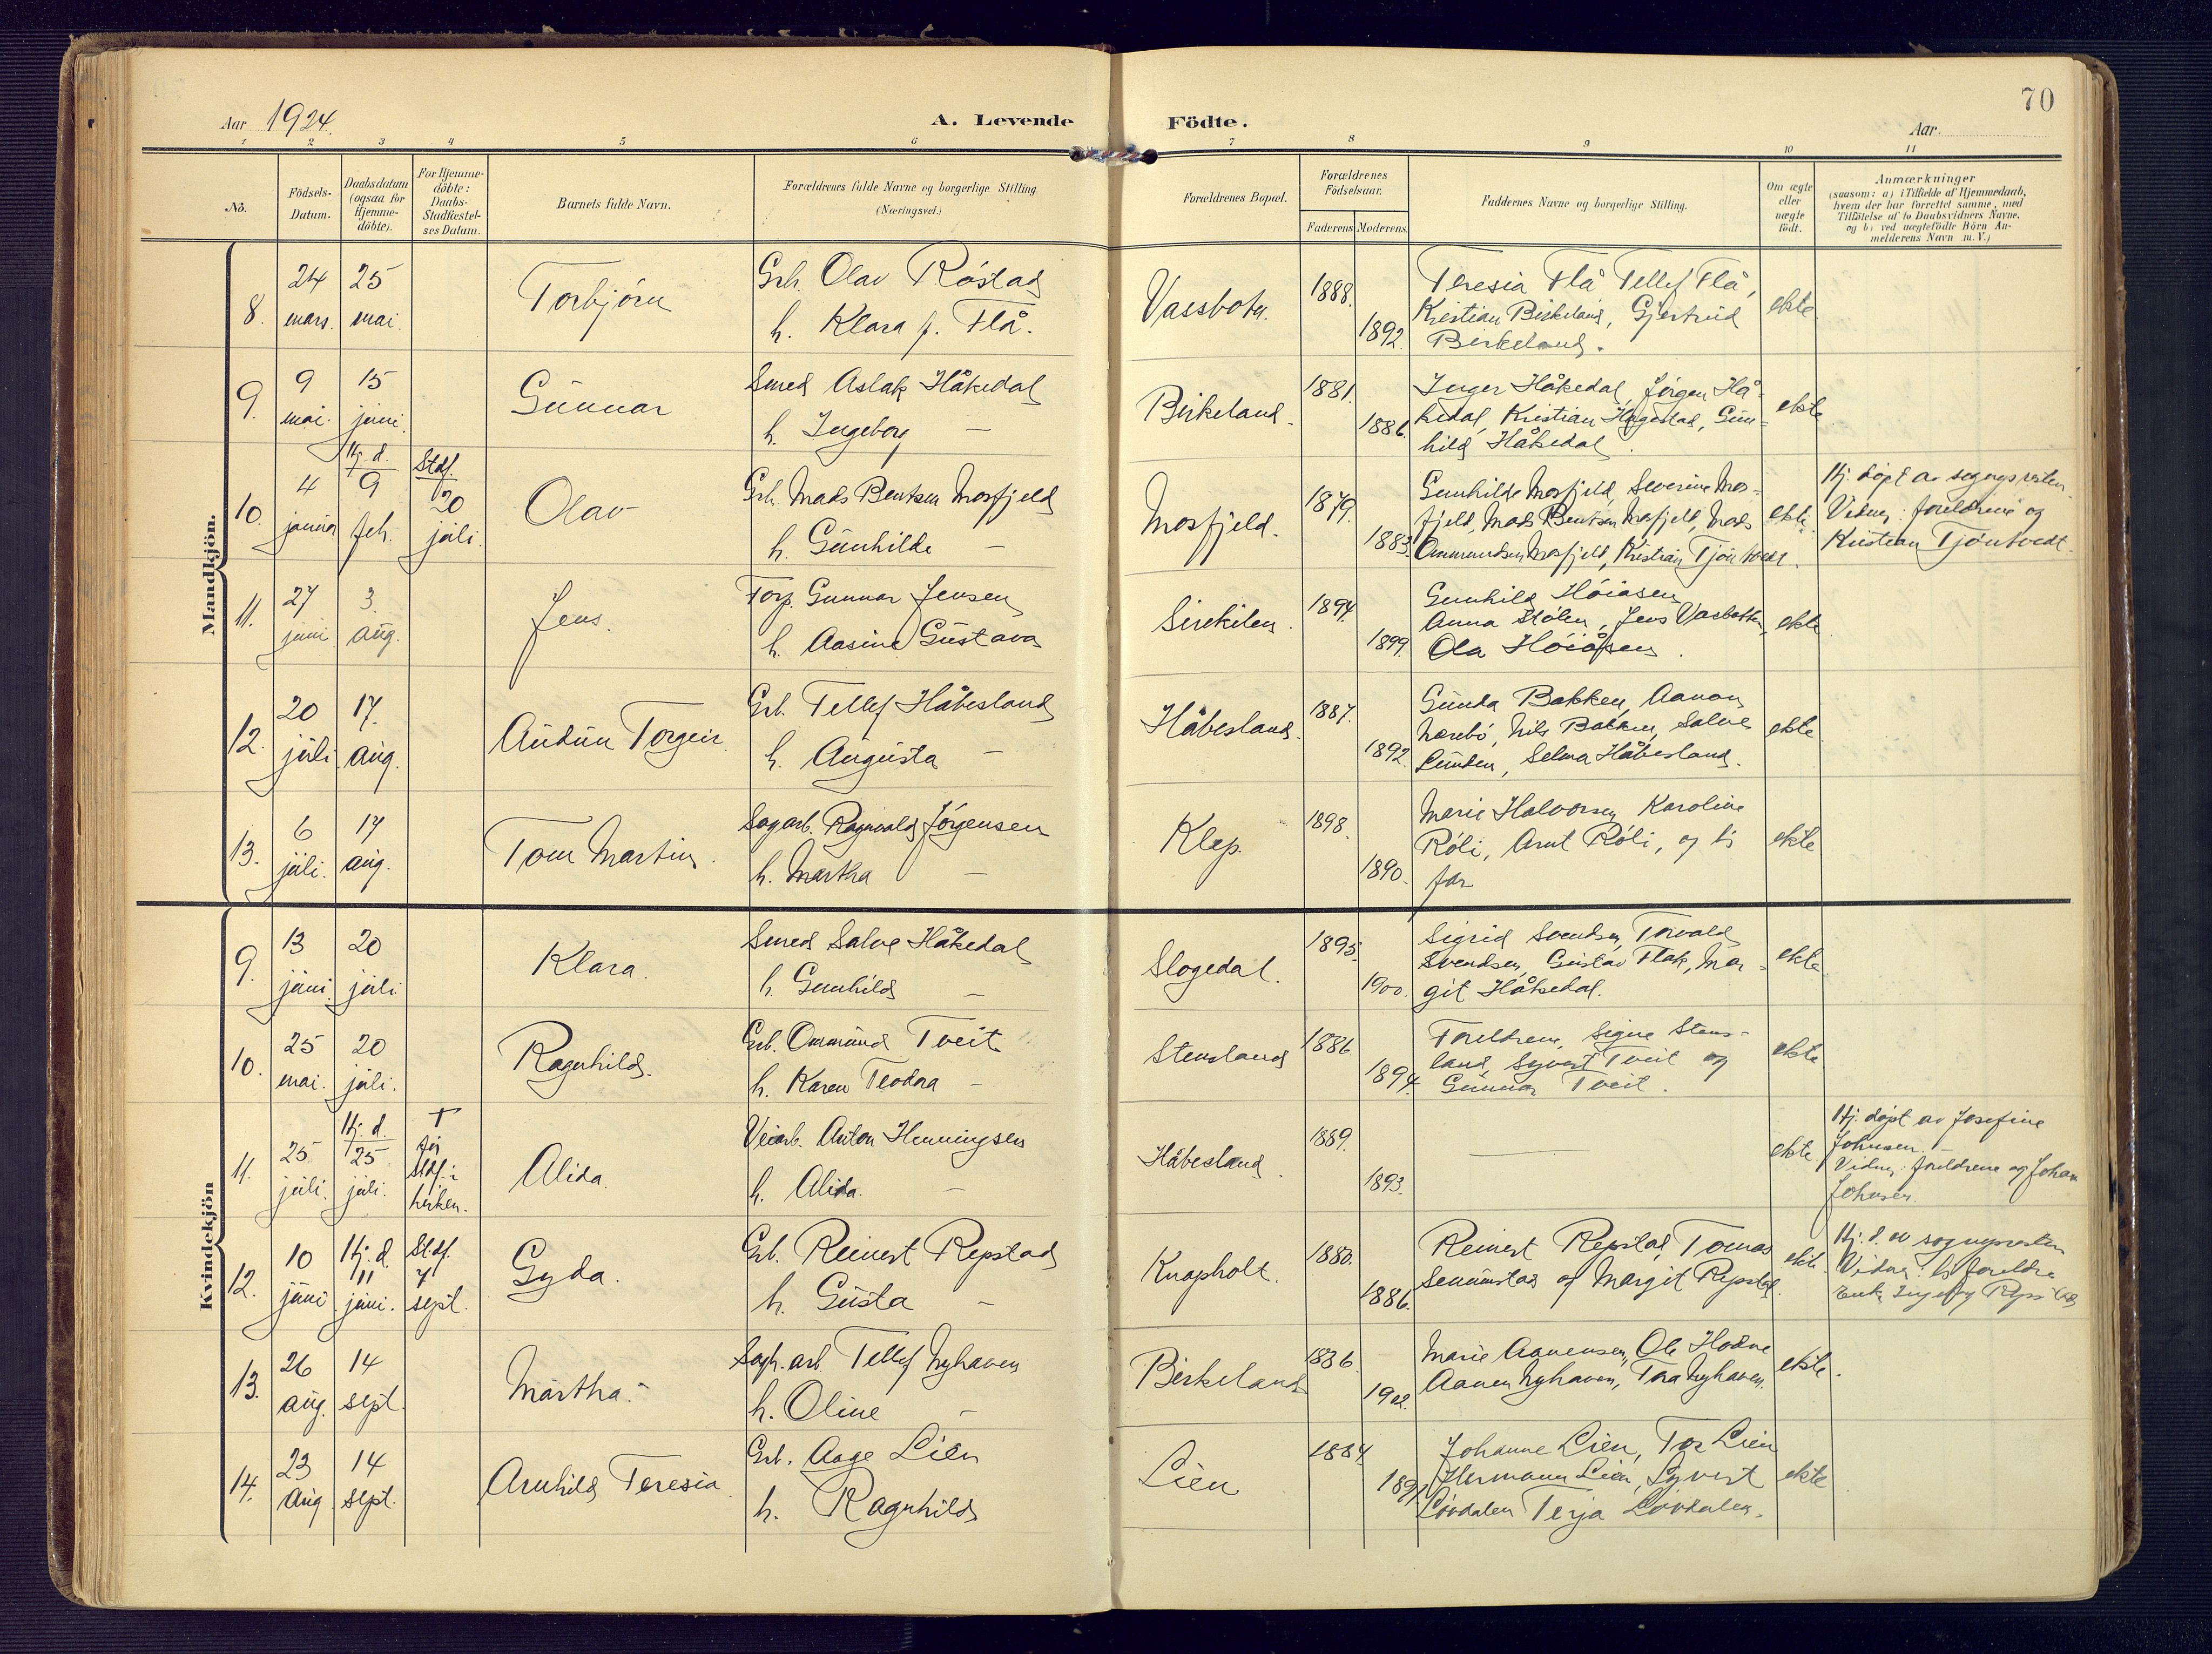 70
Aar 1924.
A. Levende Födte.
Aar
1 2 3 4 5 6 7 8 9 10 11
No.
Födsels-
Datum.
Daabsdatum
(ogsaa for
Hjemme-
döbte).
For Hjemme-
döbte:
Daabs-
Stadfæstel-
ses Datum.
Barnets fulde Navn.
Forældrenes fulde Navne og borgerlige Stilling.
(Næringsvei.)
Forældrenes Bopæl.
Forældrenes
Födselsaar.
Faderens Moderens.
Faddernes Navne og borgerlige Stilling.
Om ægte
eller
uægte
födt.
Anmærkninger
(saasom: a) i Tilfælde af Hjemmedaab,
hvem der har forrettet samme, med
Tilföielse af to Daabsvidners Navne.
og b) ved uægtefödte Börn An-
melderens Navn m. V.)
Mandkjön.
8.
24
mars.
25
mai.
Torbjörn
Grb. Olav Röstad
h. Klara f. Flå.
Vassbotn.
1888.
1892.
Teresia Flå Tellef Flå,
Kristian Birkeland, Gjertrud
Birkeland.
ekte
9.
9
mai.
15
juni.
Gunnar
Smed Aslak Håkedal
h. Ingeborg —
Birkeland.
1881.
1886.
Inger Håkedal, Jörgen Hå-
kedal, Kristian Hagestad, Gun-
hild Håkedal.
ekte
10.
4
januar
Hj. d.
9
feb.
Stdf.
20
juli.
Olav
Grb. Mads Bentsen Mosfjeld
h. Gunhilde —
Mosfjeld.
1879.
1883.
Gunhilde Mosfjeld, Severine Mos-
fjeld, Mads Bentsen Mosfjeld, Mads
Ommundsen Mosfjeld, Kristian Tjöntvedt.
ekte.
Hj. döpt av sognepresten.
Vidner: foreldrene og
Kristian Tjöntvedt.
11.
27
juni
3.
aug.
Jens.
Torp. Gunnar Jensen
h. Aasine Gustava
Sirekilen.
1894.
1899.
Gunhild Höiåsen
Anna Stölen, Jens Vasbotten,
Ola Höiåsen.
ekte
12.
20
juli
17.
aug.
Audun Torgeir
Grb. Tellef Håbesland
h. Augusta —
Håbesland.
1887.
1892.
Gunda Bakken, Aanon
Nerebö, Nils Bakken, Salve
Lunden, Selma Håbesland.
ekte
13.
6
juli.
17
aug.
Tom Martin.
Sagarb. Ragnvald Jörgensen
h. Martha —
Klep.
1898.
1890.
Marie Halvorsen, Karoline
Röli, Arnt Röli, og bs
far
ekte
Kvindekjön
9.
13
juni.
20
juli
Klara.
Smed Salve Håkedal
h. Gunhild —
Slogedal.
1895.
1900.
Sigrid Svendsen, Torvald
Svendsen, Gustav Flak, Mar-
git Håkedal.
ekte
10.
25
mai.
20
juli.
Ragnhild.
Grb. Ommund Tveit
h. Karen Teodora —
Stensland
1886
1894.
Foreldrene, Signe Stens-
land, Syvert Tveit og
Gunnar Tveit.
ekte
11.
25
juli.
Hj. d.
25
juli.
†
för
Stdf. i
kirken.
Alida.
Veiarb. Anton Henningsen
h. Alida. —
Håbesland.
1889.
1893.
—
ekte.
Hj. döpt av Josefine
Johnsen. –
Vidner: foreldrene og Johan
Johnsen.
12.
10
juni
Hj. d.
11
juni.
Stdf.
7
sept.
Gyda.
Grb. Reinert Repstad
h. Gusta —
Knapholt.
1880.
1886.
Reinert Repstad, Tomas
Senumstad og Margit Repstad.
ekte.
Hj. d. av sognepresten
Vidner: bs foreldre
Enke Ingeborg Repstad
13.
26
aug.
14
sept.
Martha.
Sagh. arb. Tellef Nyhaven
h. Oline —
Birkeland
1886.
1902.
Marie Aanensen, Ole Hodne
Aanen Nyhaven, Tora Nyhaven.
ekte.
14.
23
Aug
14
sept.
Arnhild Teresia.
Grb. Aage Lien
h. Ragnhild
Lien
1884.
1891
Johanne Lien, Tor Lien
Hermann Lien, Syvert
Lövdalen Terja Lövdalen.
ekte